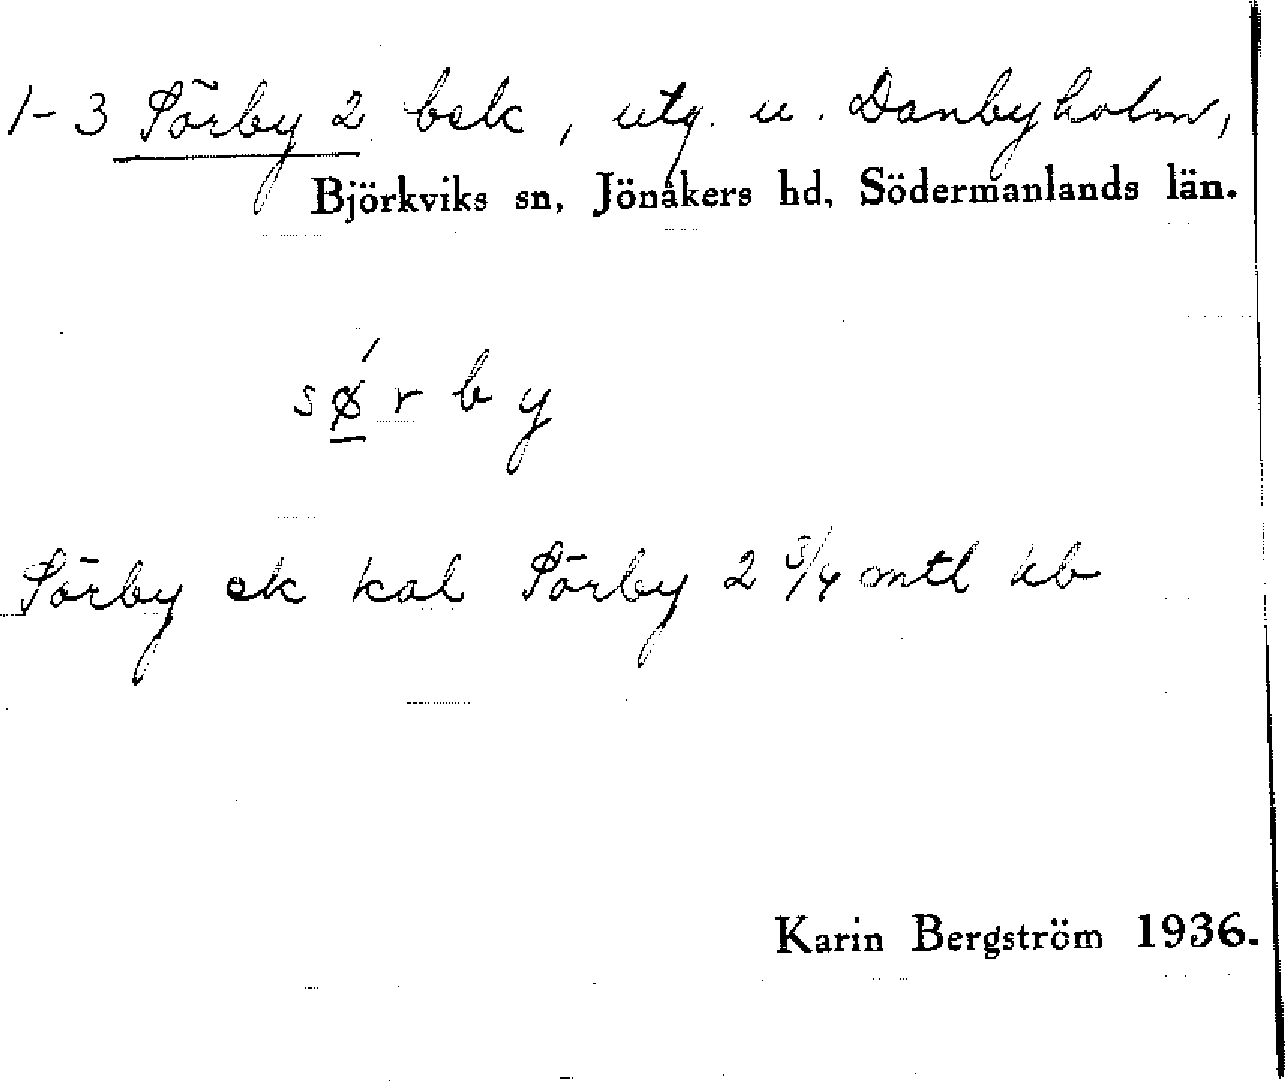 1-3 Sörby 2 bsk, utg. u. Danbyholm,
Björkviks sn, Jönåkers hd, Södermanlands län.
sǿrby
Sörby ek kal Sörby 2 3/4 mtl
Karin Bergström 1936.